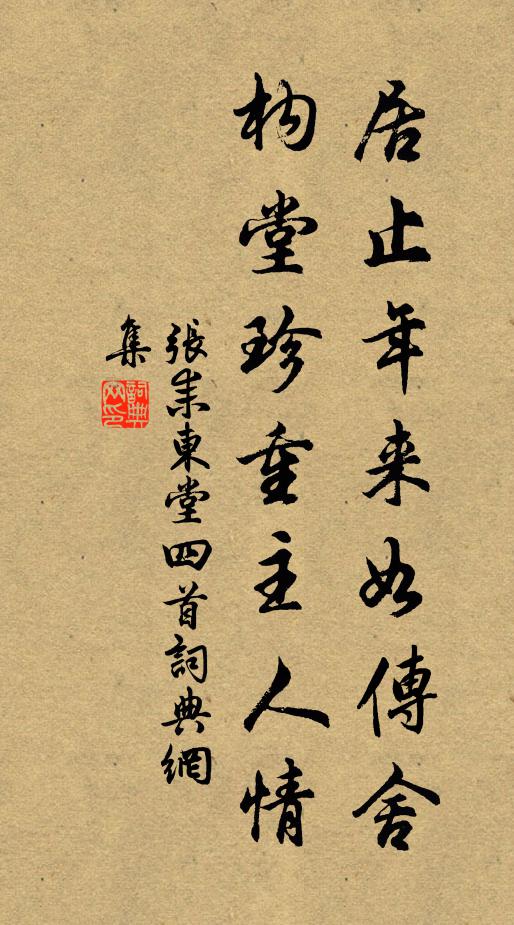 居止年来如傳舍
构堂珍重主人情
張耒東堂四首詞典網
集
詞典網印